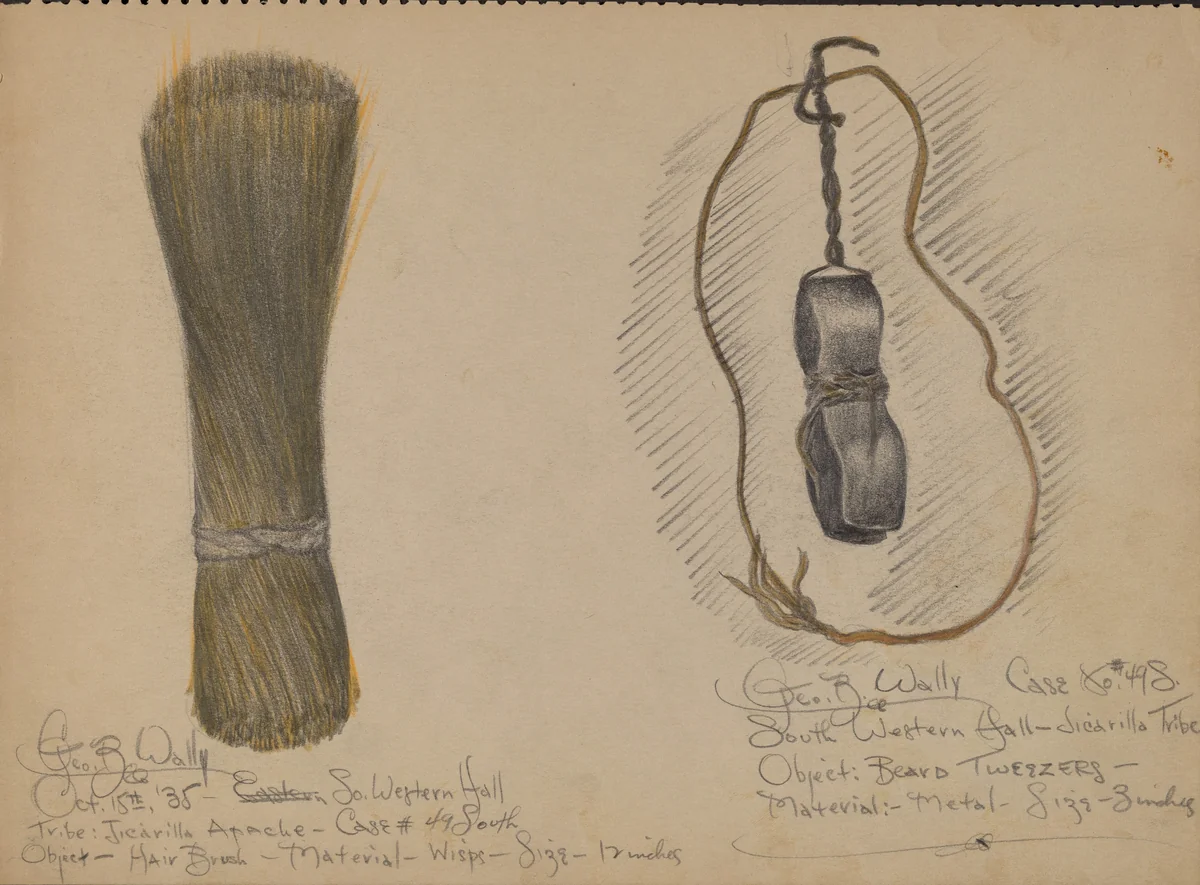 Geo. B. Wally
Oct. 15th, '35 - Eastern So. Western Hall
Tribe: Jicarilla Apache - Case # 49 South
Object - Hair Brush - Material - Wisps - Size - 12 inches
Geo. B. Wally Case No. # 49 S.
South Western Hall - Jicarilla Tribe
Object: Beard Tweezers -
Material: - Metal - Size - 3 inches